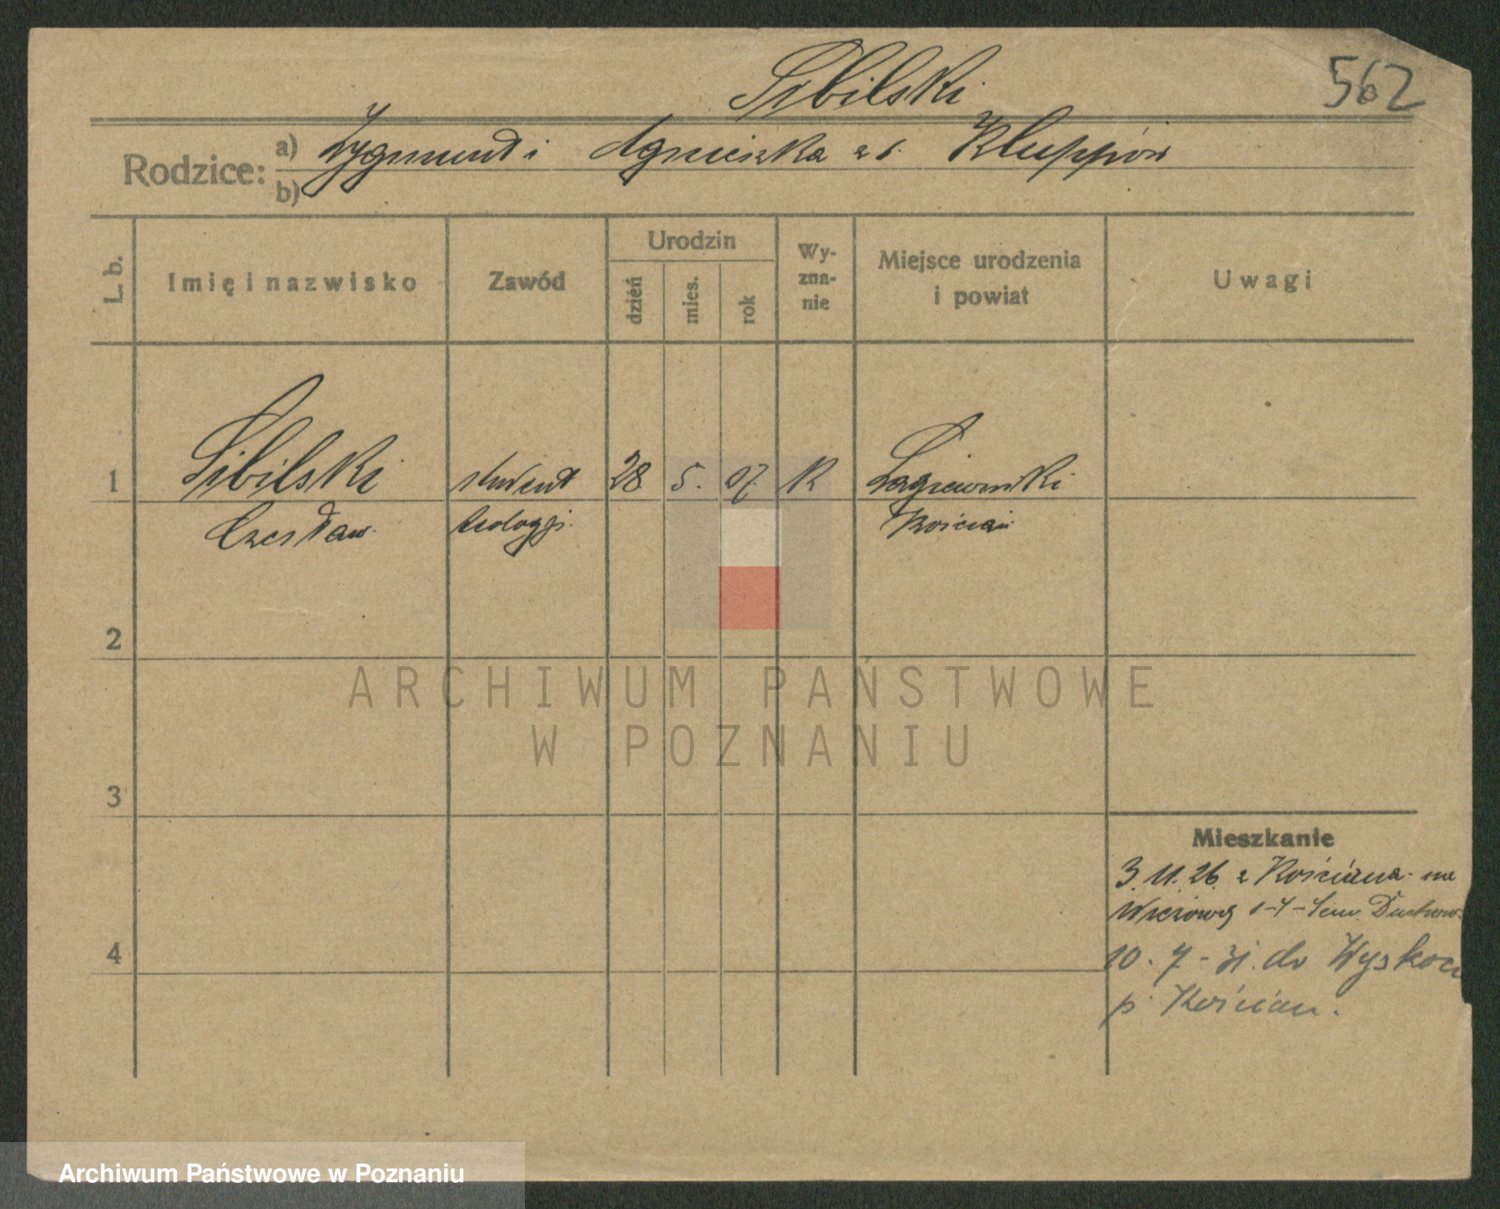 Sibilski
562
Rodzice: a) Zygmunt i Agnieszka z d. Kluppów
b)
L. b.
Imię i nazwisko
Zawód
Urodzin
dzień
mies.
rok
Wy-
zna-
nie
Miejsce urodzenia
i powiat
Uwagi
1 Sibilski student 28 5. 07. K
Czesław. teologji. Kościan
2
3
4
Mieszkanie
3.11.26 z Kościana na
Wieżową Sem. Duchow.
10.7-31. do Wyskoci
p. Kościan.
ARCHIWUM PAŃSTWOWE
W POZNANIU
Archiwum Państwowe w Poznaniu